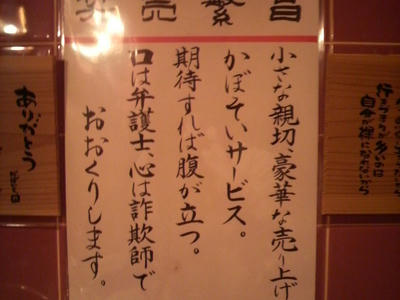 笑売繁昌
小さな親切、豪華な売り上げ
かぼそいサービス。
期待すれば腹が立つ。
口は弁護士、心は詐欺師で
おおくりします。
ありがとう
自分が裸になれないから